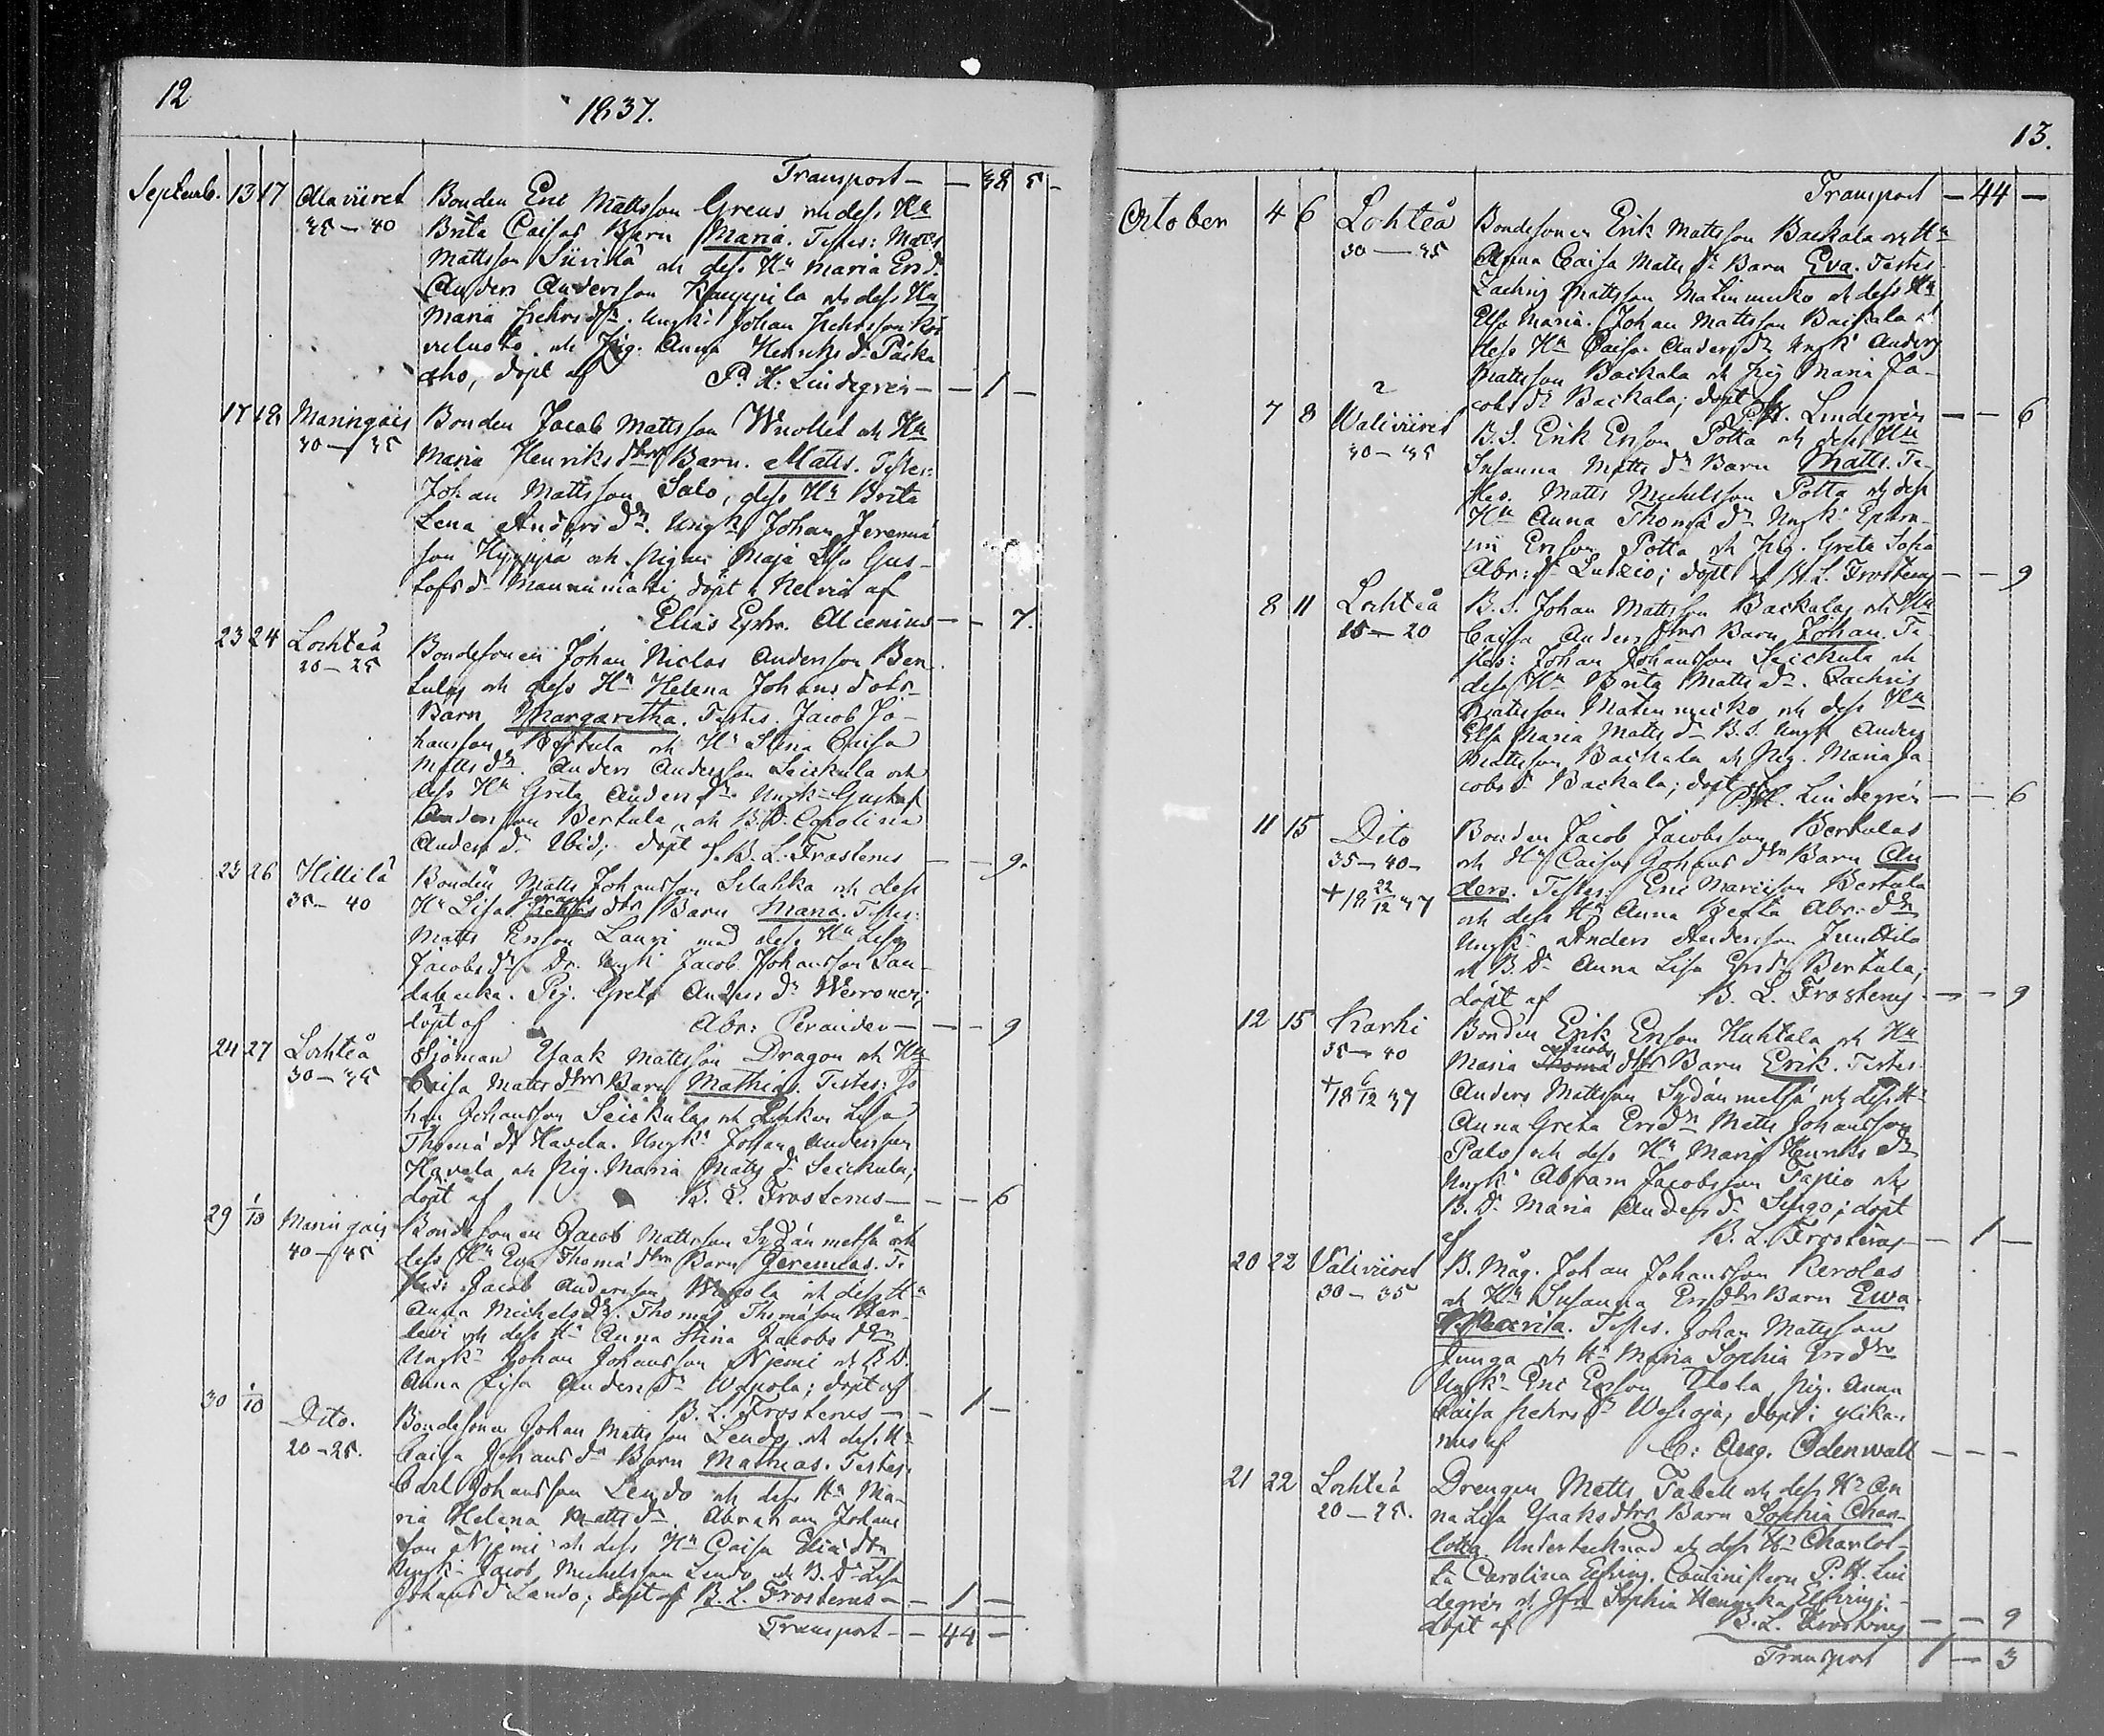 12
1837.
Transport — — 38 5 —
Septemb. 13 17 Alaviiret Bonden Eric Mattsson Greus och dess Hu
35—40 Brita Caisas Barn Maria. Testes: Matts
Mattsson Siirilä och dess Hu Maria Ersdr
Anders Andersson Kauppila och dess Hu
Maria Pehrsdr. Ungk: Johan Pehrsson
och Pig. Anna Henriksdr Päika
aho, döpt af P. H. Lindegrén — — 1 —
17 18 Maringais Bonden Jacob Mattsson Wuollet och Hu
30—35 Maria Henriksdtrs Barn. Matts. Testes:
Johan Mattsson Salo, dess Hu Brita
Lena Andersdr. Ungk: Johan Jeremiæ
son Hyyppä och Pigan Maja Lisa Gus-
tafsdr Mannimäki, döpt i Kelviå af
Elias Ephr. Alcenius — — 7.
23 24 Lochteå Bondesonen Johan Niclas Andersson Ber
20—25 tulas och dess Hu Helena Johansdotr
Barn Margaretha. Testes. Jacob Jo-
hansson Bertula och Hu Stina Caisa
Mattsdr. Anders Andersson Seickula och
dess Hu Greta Andersdr Ungk: Gustaf
Andersson Bertula, och B. Dr Carolina
Andersdr Ibid; döpt af B. L. Frosterus — — 9.
23 26 Hillilä Bonden Matts Johansson och dess
35—40 Hu Lisa dtrs Barn Maria. Testes:
Matts Ersson Lauri med dess Hu Lisa
Jacobsdr. Dr. Ungk: Jacob Johansson San-
. Pig. Greta Andersdr Werronen;
döpt af Abr: Perander — — — 9
24 27 Lochteå Sjöman Isaak Mattsson Dragon och Hu
30—35 Caisa Mattsdtrs Barn Mathias. Testes: Jo
han Johansson Seickula och Enkan Lisa
Thomædr Havela. Ungk: Johan Andersson
Havela och Pig. Maria Mattsdr Seickula;
döpt af B. L. Frosterus — — — 6
29 1/10 Maringais Bondesonen Jacob Mattsson Sydänmetsä och
40—45 dess Hu Eva Thomædtrs Barn Jeremias. Te
stes: Jacob Andersson Wapola och dess Hu
Anna Michelsdr. Thomas Thomæson Her-
levi och dess Hu Anna Stina Jacobsdtr
Ungk: Johan Johansson Njemi och B. D.
Anna Lisa Andersdr Wapola; döpt af
B. L. Frosterus — — 1 —
30 1/10 Dito. Bondesonen Johan Mattsson Lendo och dess Hu
20—25. Caisa Johansdr Barn Mathias. Testes:
Carl Johansson Lendo och dess Hu Ma-
ria Helena Mattsdr. Abraham Johans
son Njemi och dess Hu Caisa Eliædtr
Ungk: Jacob Michelsson Lendo och B. Dr Lisa
Johansdr Lando; döpt af B. L. Frosterus — — 1 —
Transport — — 44 —
13.
Transport — 44 —
October 4 6 Lohteå Bondesonen Erik Mattsson Backala och Hu
30—35 Anna Caisa Mattsdr Barn Eva. Testes
Zachris Mattsson Matinmicko och dess Hu
Elsa Maria. Johan Mattsson Backala och
dess Hu Caisa Andersdr Ungk: Anders
Mattsson Backala och Pig Maria Ja-
cobsdr Backala; döpt af P. H. Lindegrén — — 6
7 8 Waliviiret B. S. Erik Ersson Potta och dess Hu
30—35 Susanna Mattsdr Barn Matts. Te-
stes. Matts Michelsson Potta och dess
Hu Anna Thomædr Ungk: Ephra-
im Ersson Potta och Pig. Greta Sofia
Abr:dr ; döpt af B. L. Frosterus — — 9
8 11 Lochteå B. S. Johan Mattsson Backalas och Hu
15—20 Caisa Andersdtrs Barn Johan. Te
stes: Johan Johansson Seickula och
dess Hu Brita Mattsdr. Zachris
Mattsson Matinmicko och dess Hu
Elsa Maria Mattsdr B. S. Ungk Anders
Mattsson Backala och Pig. Maria Ja
cobsdr Backala; döpt af P. H. Lindegrén — — 6
11 15 Dito Bonden Jacob Jacobsson Bertulas
35—40— och Hu Caisas Johansdtrs Barn An
+ 18 22/12 37 ders. Testes: Eric Mariæson Bertula
och dess Hu Anna Beata Abr:dtr
Ungk: Anders Andersson Junttila
och B. Dr Anna Lisa Ersdr Bertula;
döpt af B. L. Frosterus — — 9
12 15 Karhi Bonden Erik Ersson Huhtala och Hu
35—40 Maria Jacobs dtrs Barn Erik. Testes.
+ 18 6/12 37 Anders Mattsson Sydänmetsä och dess Hu
Anna Greta Ersdr Matts Johansson
Palo och dess Hu Maria Henriksdr
Ungk: Abram Jacobsson Tapio och
B. Dr Maria Andersdr Lingo; döpt
af B. L. Frosterus — 1 —
20 22 Väliviiret B. Måg. Johan Johansson Kerolas
30—35 och Hu Susanna Ersdtrs Barn Ewa
. Testes. Johan Mattsson
Junga och Hu Maria Sophia Ersdtr
Ungk: Eric Ersson Ylola, Pig. Anna
Caisa Pehrsdr Wessoja, döpt i
af C: Aug. Odenwall — — —
21 22 Lochteå Drengen Matts Tabell och dess Hu An
20—25. na Lisa Isaaksdtrs Barn Sophia Char-
lotta. Undertecknad och dess Hu Charlot-
ta Carolina Elfving. Comministern P. H. Lin
degrén och Jfru Sophia Henrika Elfving;
döpt af B. L. Frosterus — — 9
Transport 1 — 3